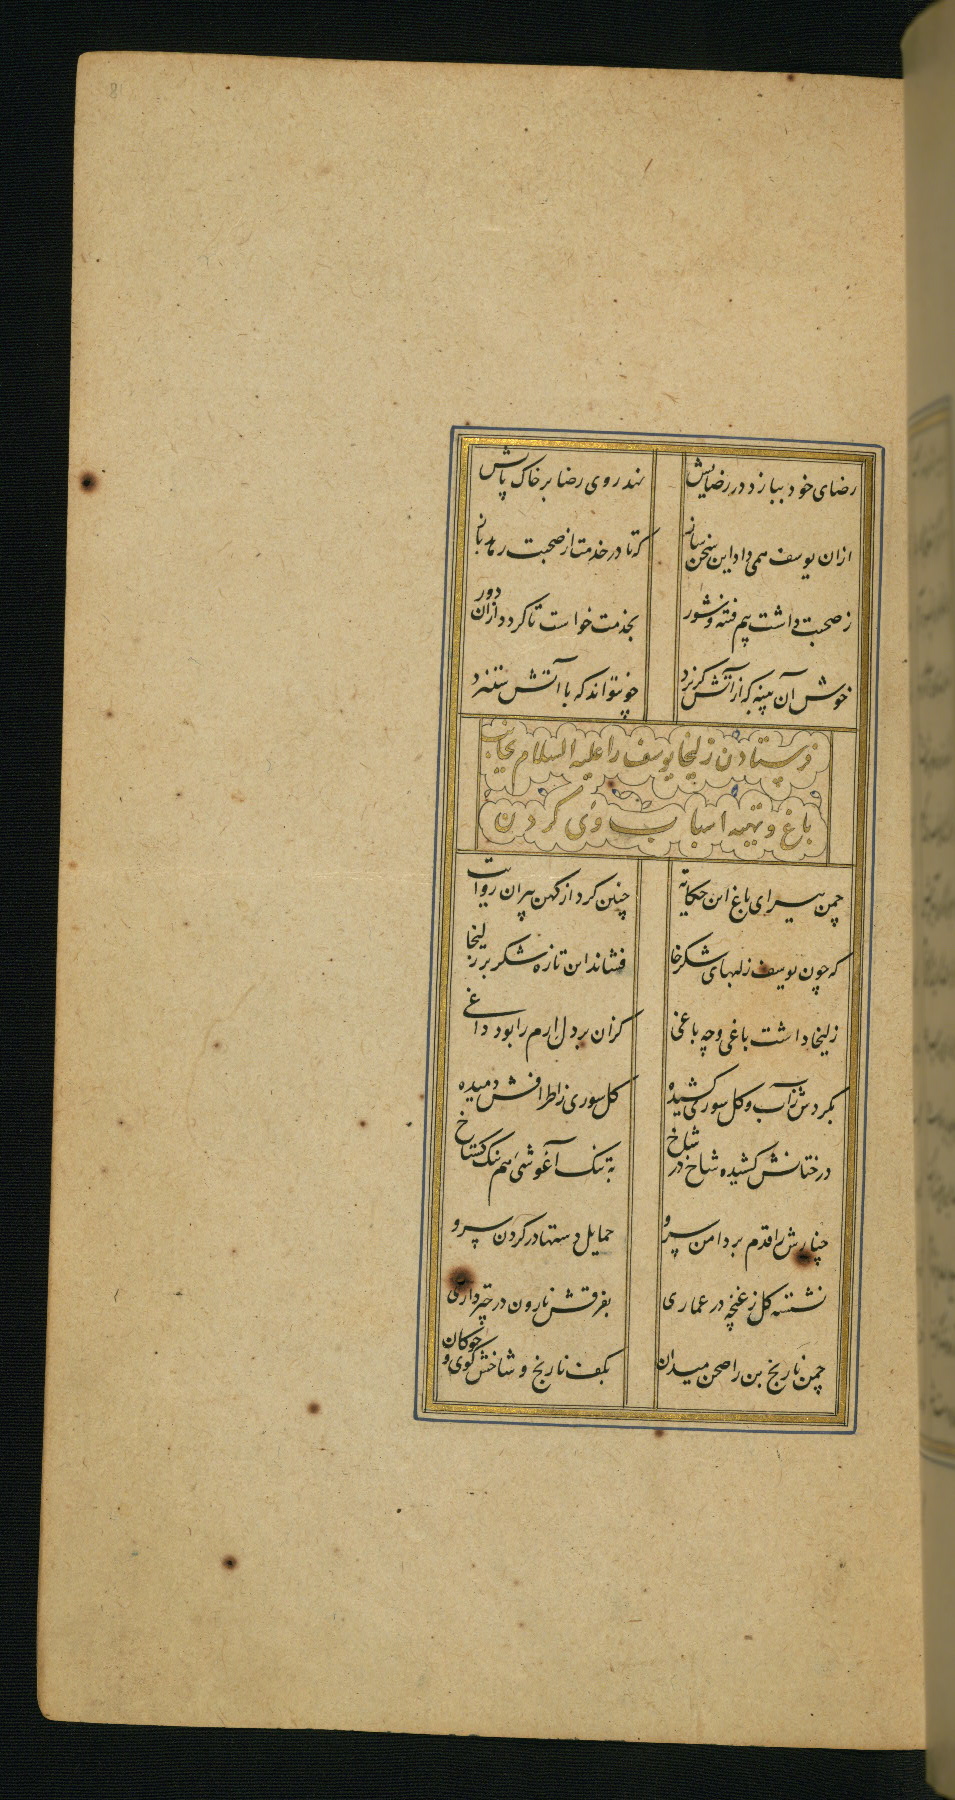 81
رضای خود ببازد در رضایش نهد روی رضا بر خاک پایش
ازان یوسف همی داد این سخن ساز که تا در خدمت از صحبت رهد باز
ز صحبت داشت بیم فتنه و شور بخدمت خواست تا گردد ازان دور
خوش آن پنبه که از آتش گریزد چو نتواند که با آتش ستیزد
فرستادن زلیخا یوسف را علیه السلام بجانب
باغ و تهیه اسباب وی کردن
چمن پیرای باغ این حکایت چنین کرد از کهن پیران روایت
که چون یوسف ز لبهای شکرخا فشاند این تازه شکر بر زلیخا
زلیخا داشت باغی و چه باغی کزان بر دل ارم را بود داغی
بگردش ز آب و گل سوری کشیده گل سوری ز اطرافش دمیده
درختانش کشیده شاخ در شاخ به تنک آغوشی هم نیک گستاخ
چنارش را قدم بر دامن سرو حمایل دستها در گردن سرو
نشسته گل ز غنچه در عماری بفرقش نارون در چترداری
چمن نارنج بن را صحن میدان بکف نارنج و شاخش گوی و چوکان